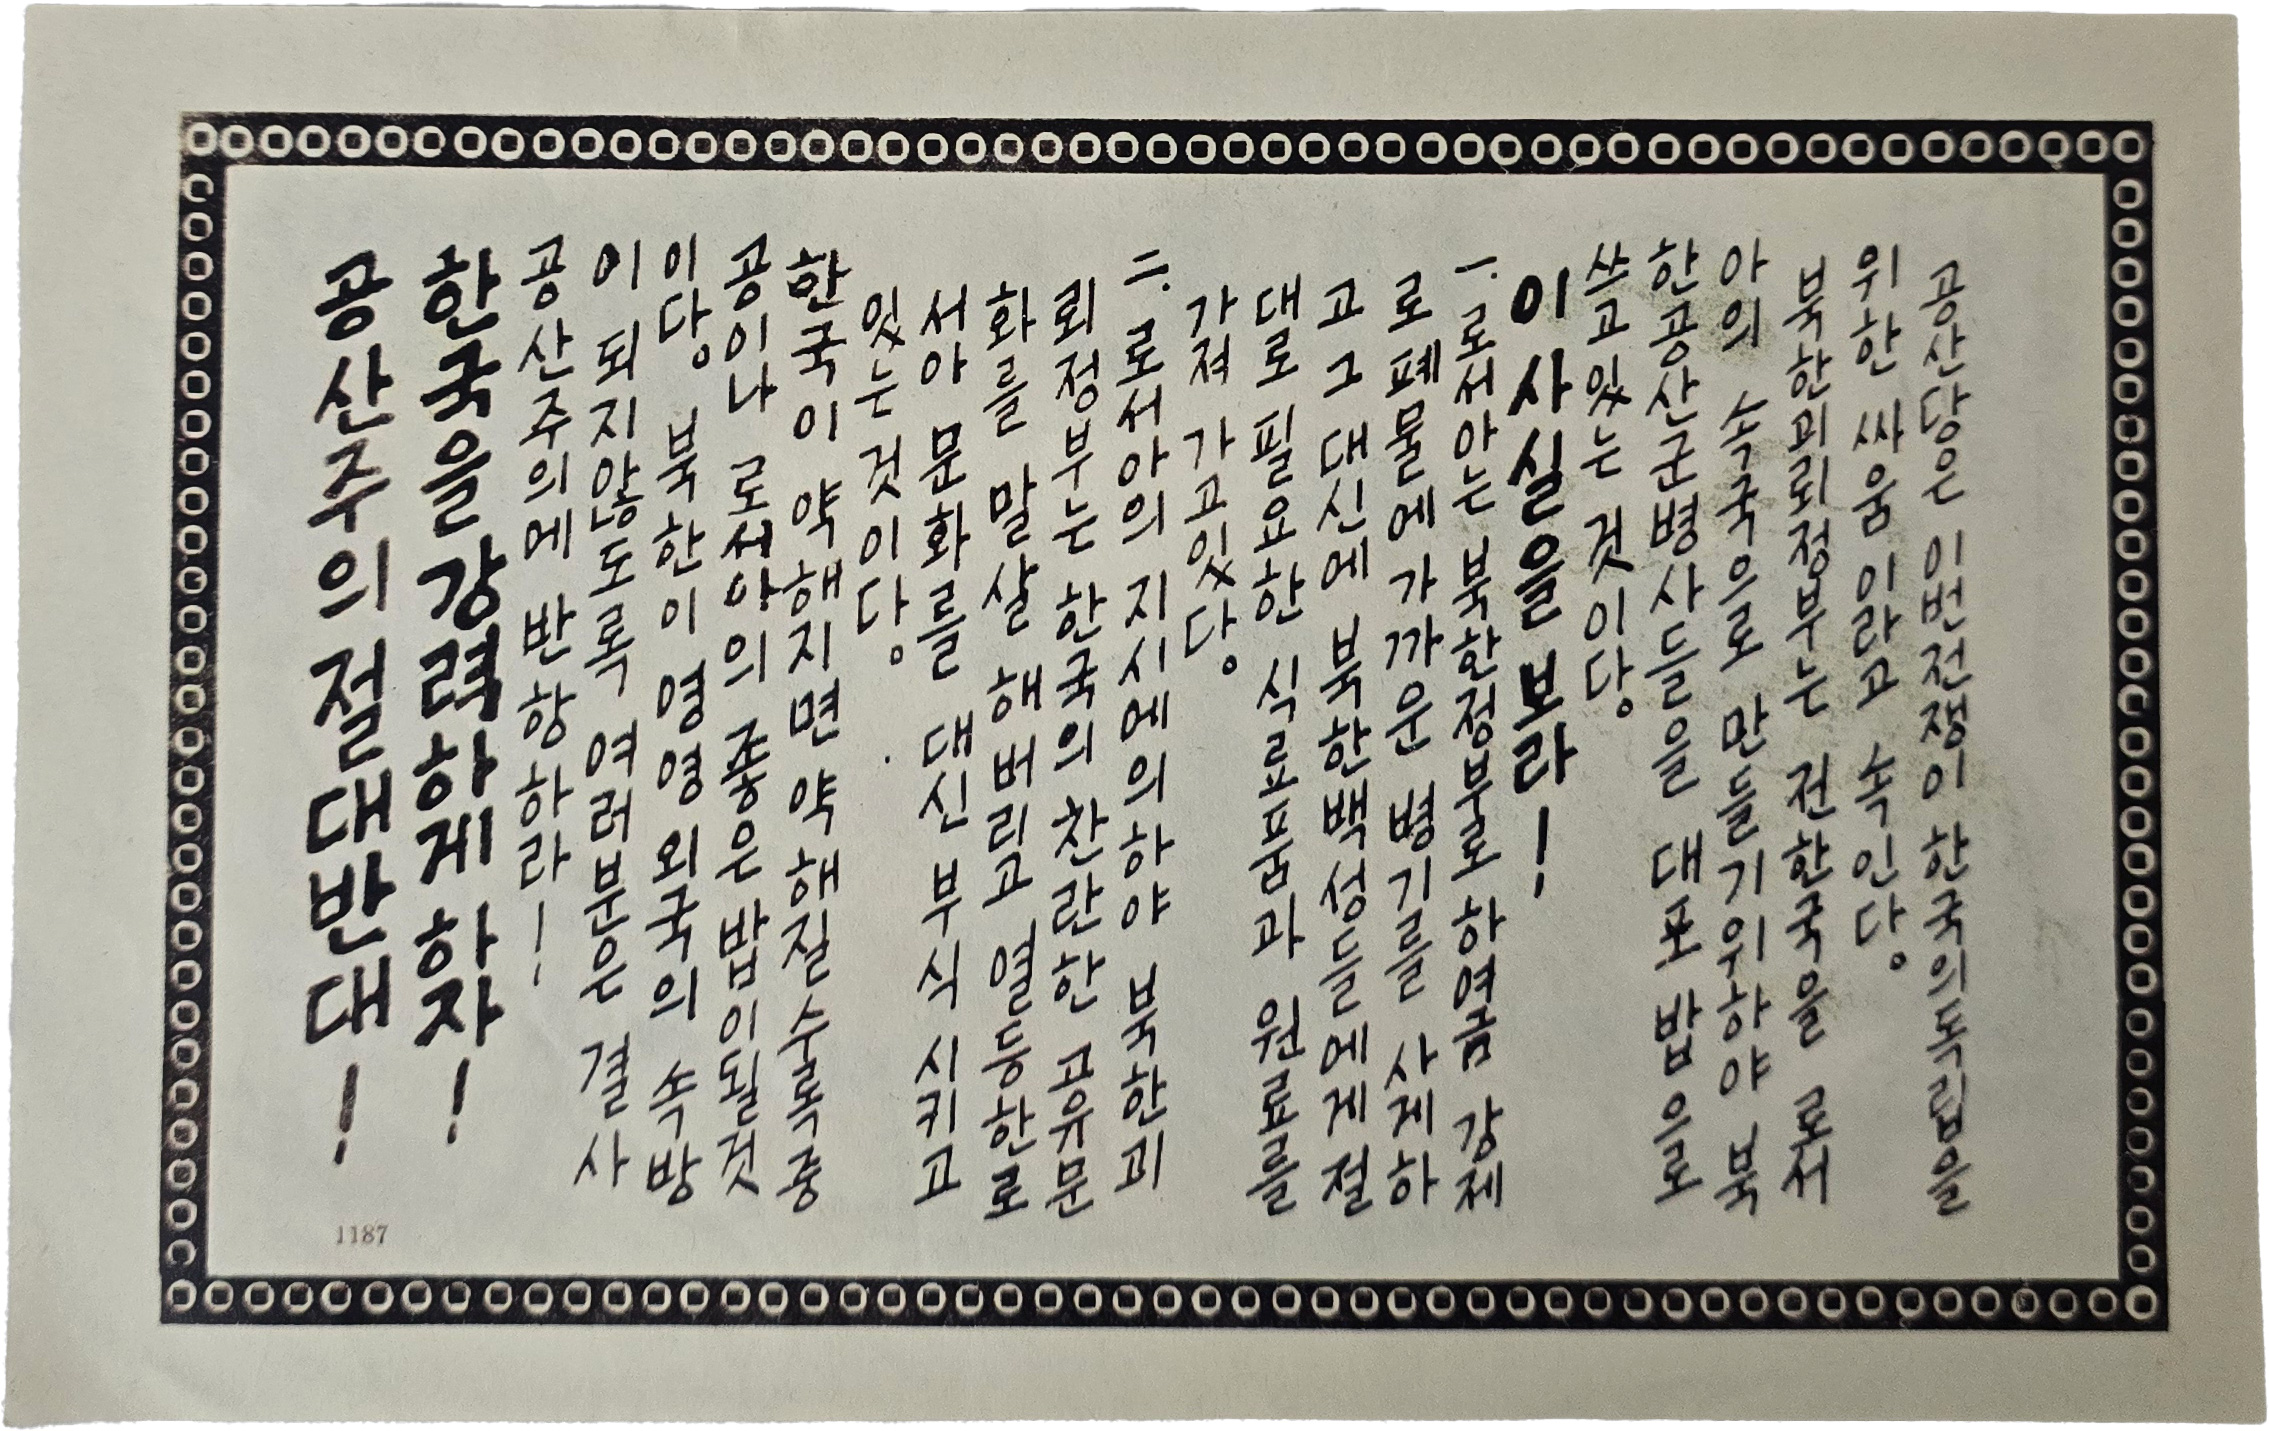 공산당은 이번전쟁이 한국의독립을
위한 싸움 이라고 속인다。
북한괴뢰정부는 전한국을 로서
아의 속국으로 만들기위하야 북
한공산군병사들을 대포 밥으로
쓰고있는 것이다。
이 사실을 보라!
一. 로서아는 북한정부로 하여금 강제
로폐물에가까운 병기를 사게하
고 그 대신에 북한백성들에게절
대로 필요한 식료품과 원료를
가져 가고있다。
二. 로서아의 지시에의하야 북한괴
뢰정부는 한국의찬란한 고유문
화를 말살 해버리고 열등한로
서아 문화를 대신 부식 시키고
있는 것이다。
한국이 약해지면 약해질수록중
공이나 로서아의 좋은밥이될것
이다。 북한이 영영외국의 속방
이 되지않도록 여러분은 결사
공산주의에 반항하라!
한국을강력하게 하자!
공산주의절대반대!
1187